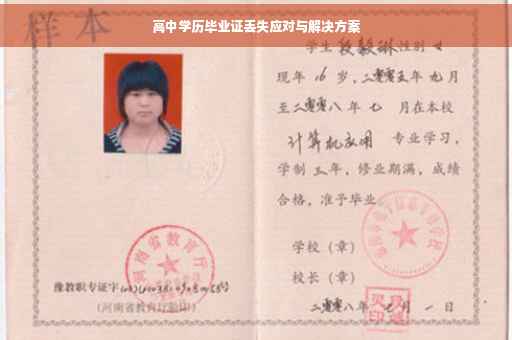 高中学历毕业证丢失应对与解决方案
样本
学生 段毅琳 性别 女
现年 16 岁，二零零五年 九 月
至二零零八年 七 月在本校
计算机应用 专业学习，
学制 三 年，修业期满，成绩
合格，准予毕业。
学校（章）
校长（章）
二零零八年 七月 一 日
河南省教育厅
豫教职专证字
（河南省教育厅验印）